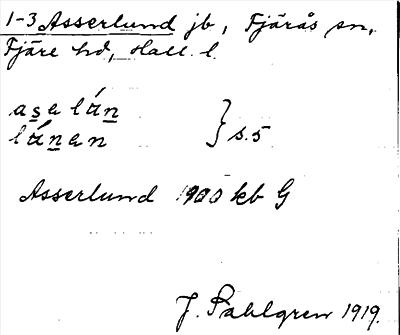 1-3 Asserlund jb, Fjärås sn,
Fjäre hd, Hall. l.
aselún
lúnen } s. 5
Asserlund 1900 kb G
J. Sahlgren 1919.